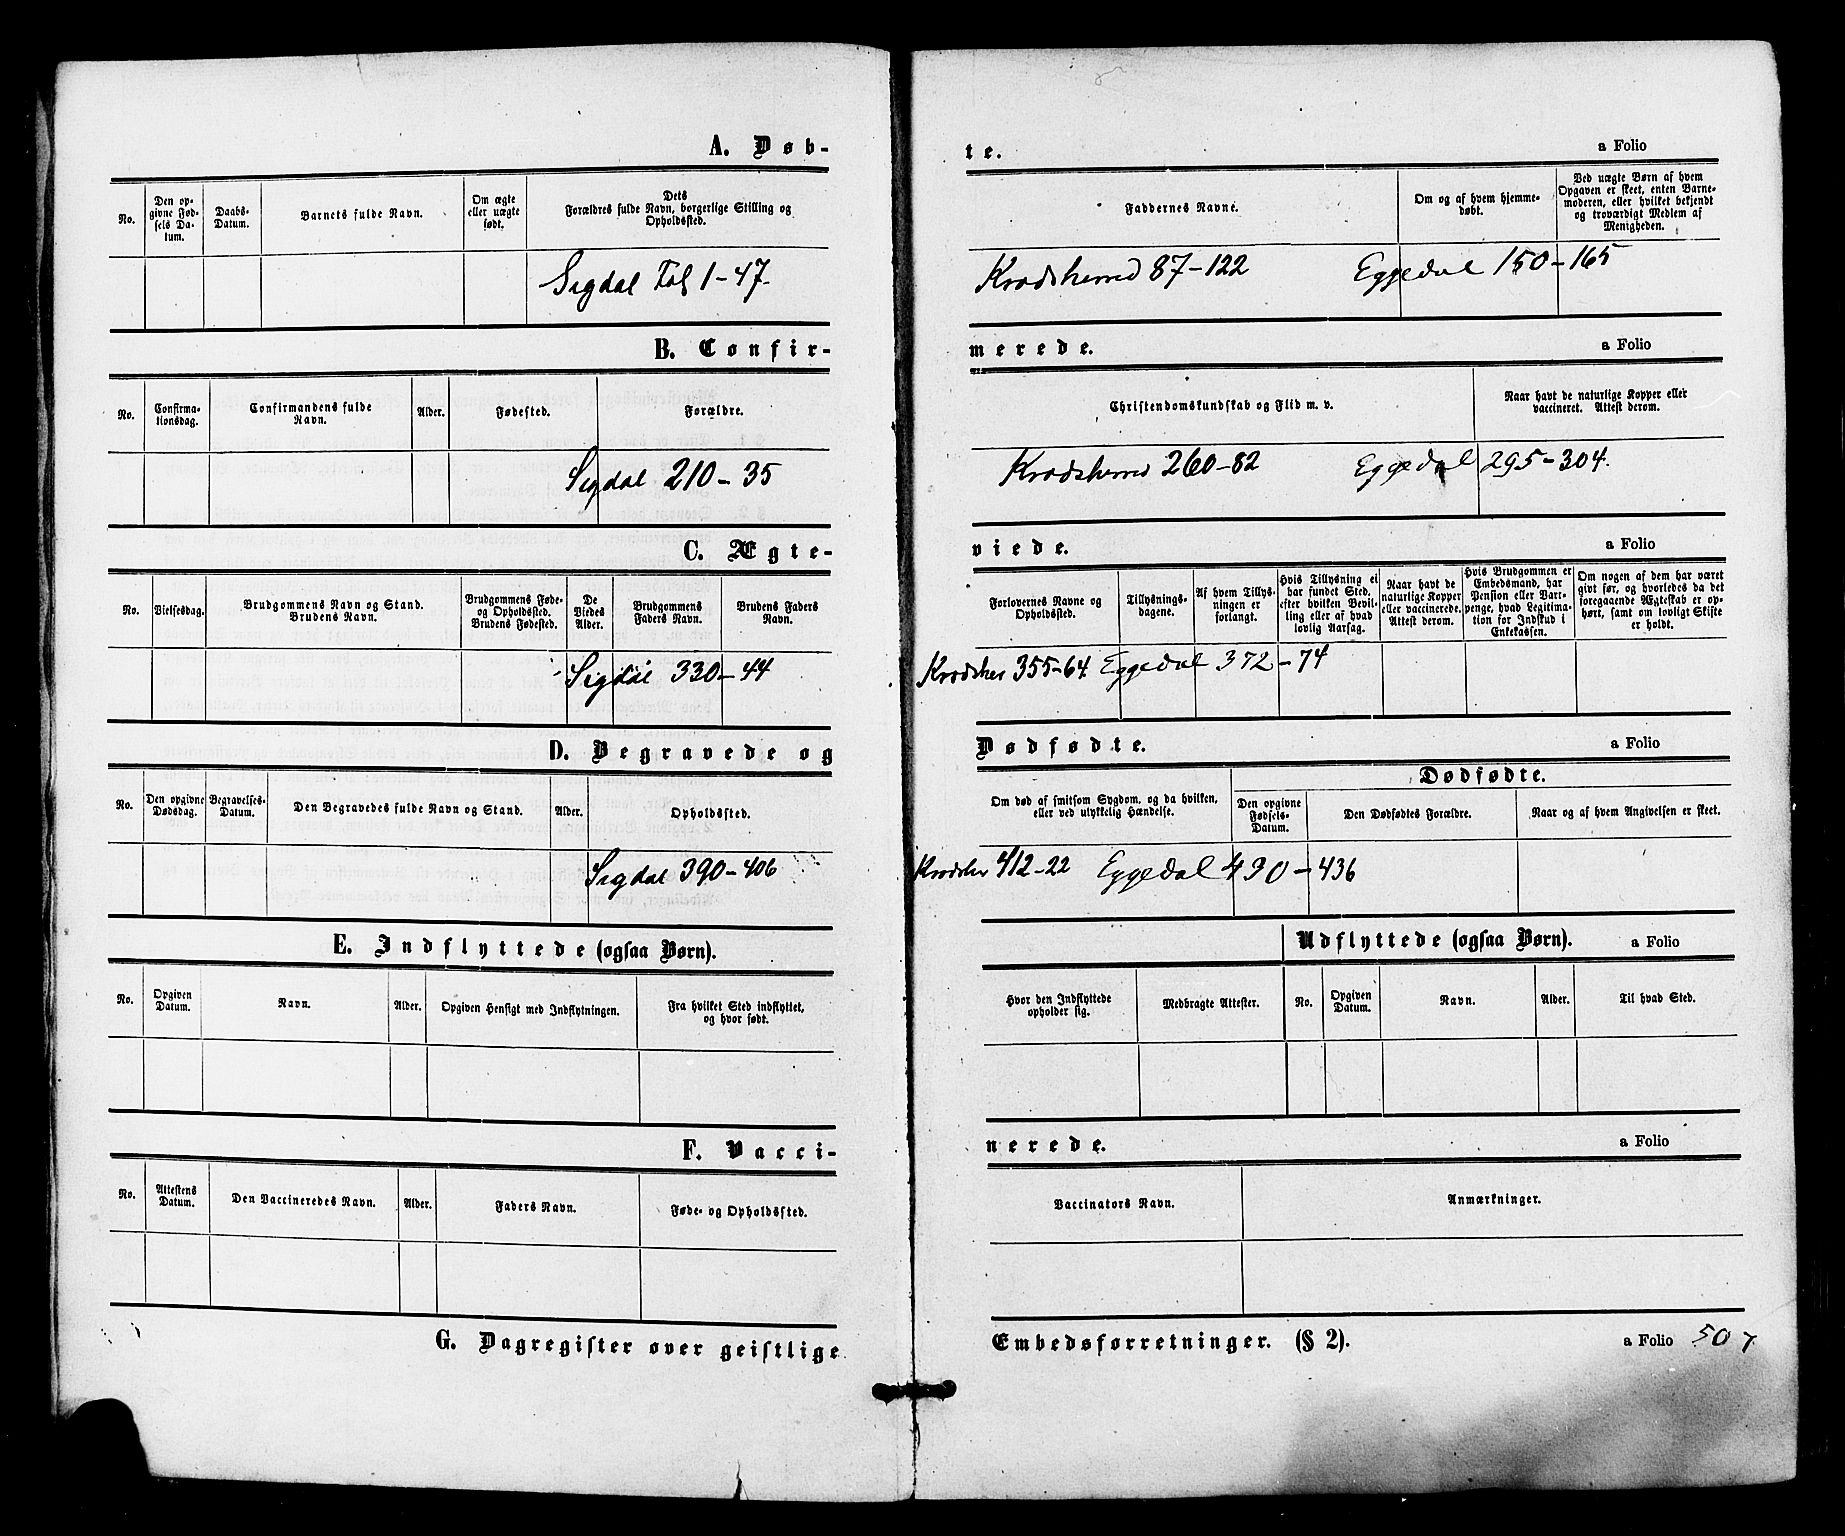 A. Døb-
te.
a Folio
No.
Den op-
givne Fød-
sels Da-
tum.
Daabs-
Datum.
Barnets fulde Navn.
Om ægte
eller uægte
født.
Dets
Forældres fulde Navn, borgerlige Stilling og
Opholdssted.
Faddernes Navne.
Om og af hvem hjemme-
døbt.
Ved uægte Børn af hvem
Opgaven er skeet, enten Barne-
moderen, eller hvilket bekjendt
og troværdigt Medlem af
Menigheden.
Sigdal Fol 1-47.
Krodsherred 87-122
Eggedal 150-165
B. Confir-
merede.
a Folio
No.
Confirma-
tionsdag.
Confirmandens fulde
Navn.
Alder.
Fødested.
Forældre.
Christendomskundskab og Flid m. v.
Naar havt de naturlige Kopper eller
vaccineret. Attest derom.
Sigdal 210-35
Krodsherred 260-82
Eggedal 295-304.
C. Ægte-
viede.
a Folio
No.
Vielsesdag.
Brudgommens Navn og Stand.
Brudens Navn.
Brudgommens Føde-
og Opholdssted.
Brudens Fødested.
De
Viedes
Alder.
Brudgommens
Faders Navn.
Brudens Faders
Navn.
Forlovernes Navne og
Opholdssted.
Tillysnings-
dagene.
Af hvem Tillys-
ningen er
forlangt.
Hvis Tillysning ei
har fundet Sted,
efter hvilken Bevil-
ling eller af hvad
lovlig Aarsag.
Naar havt de
naturlige Kopper
eller vaccinerede.
Attest derom.
Hvis Brudgommen er
Embedsmand, har
Pension eller Vart-
penge, hvad Legitima-
tion for Indskud i
Enkekassen.
Om nogen af dem har været
givt før, og hvorledes da det
foregaaende Ægteskab er op-
hørt, samt om lovligt Skifte
er holdt.
Sigdal 330-44
Krodsher 355-64
Eggedal 372-74
D. Begravede og
Dødfødte.
a Folio
No.
Den opgivne
Dødsdag.
Begravelses-
Datum.
Den Begravedes fulde Navn og Stand.
Alder.
Opholdssted.
Om død af smitsom Sygdom, og da hvilken,
eller ved ulykkelig Hændelse.
Dødfødte.
Den opgivne
Fødsels-
Datum.
Den Dødfødtes Forældre.
Naar og af hvem Angivelsen er skeet.
Sigdal 390-406
Krodsher 412-22
Eggedal 430-436
E. Indflyttede (ogsaa Børn).
Udflyttede (ogsaa Børn).
a Folio
No.
Opgiven
Datum.
Navn.
Alder.
Opgiven Hensigt med Indflytningen.
Fra hvilket Sted indflyttet,
og hvor født.
Hvor den Indflyttede
opholder sig.
Medbragte Attester.
No.
Opgiven
Datum.
Navn.
Alder.
Til hvad Sted.
F. Vacci-
nerede.
a Folio
No.
Attestens
Datum.
Den Vaccineredes Navn.
Alder.
Faders Navn.
Føde- og Opholdssted.
Vaccinators Navn.
Anmærkninger.
G. Dagregister over geistlige
Embedsforretninger. (§ 2).
a Folio 507